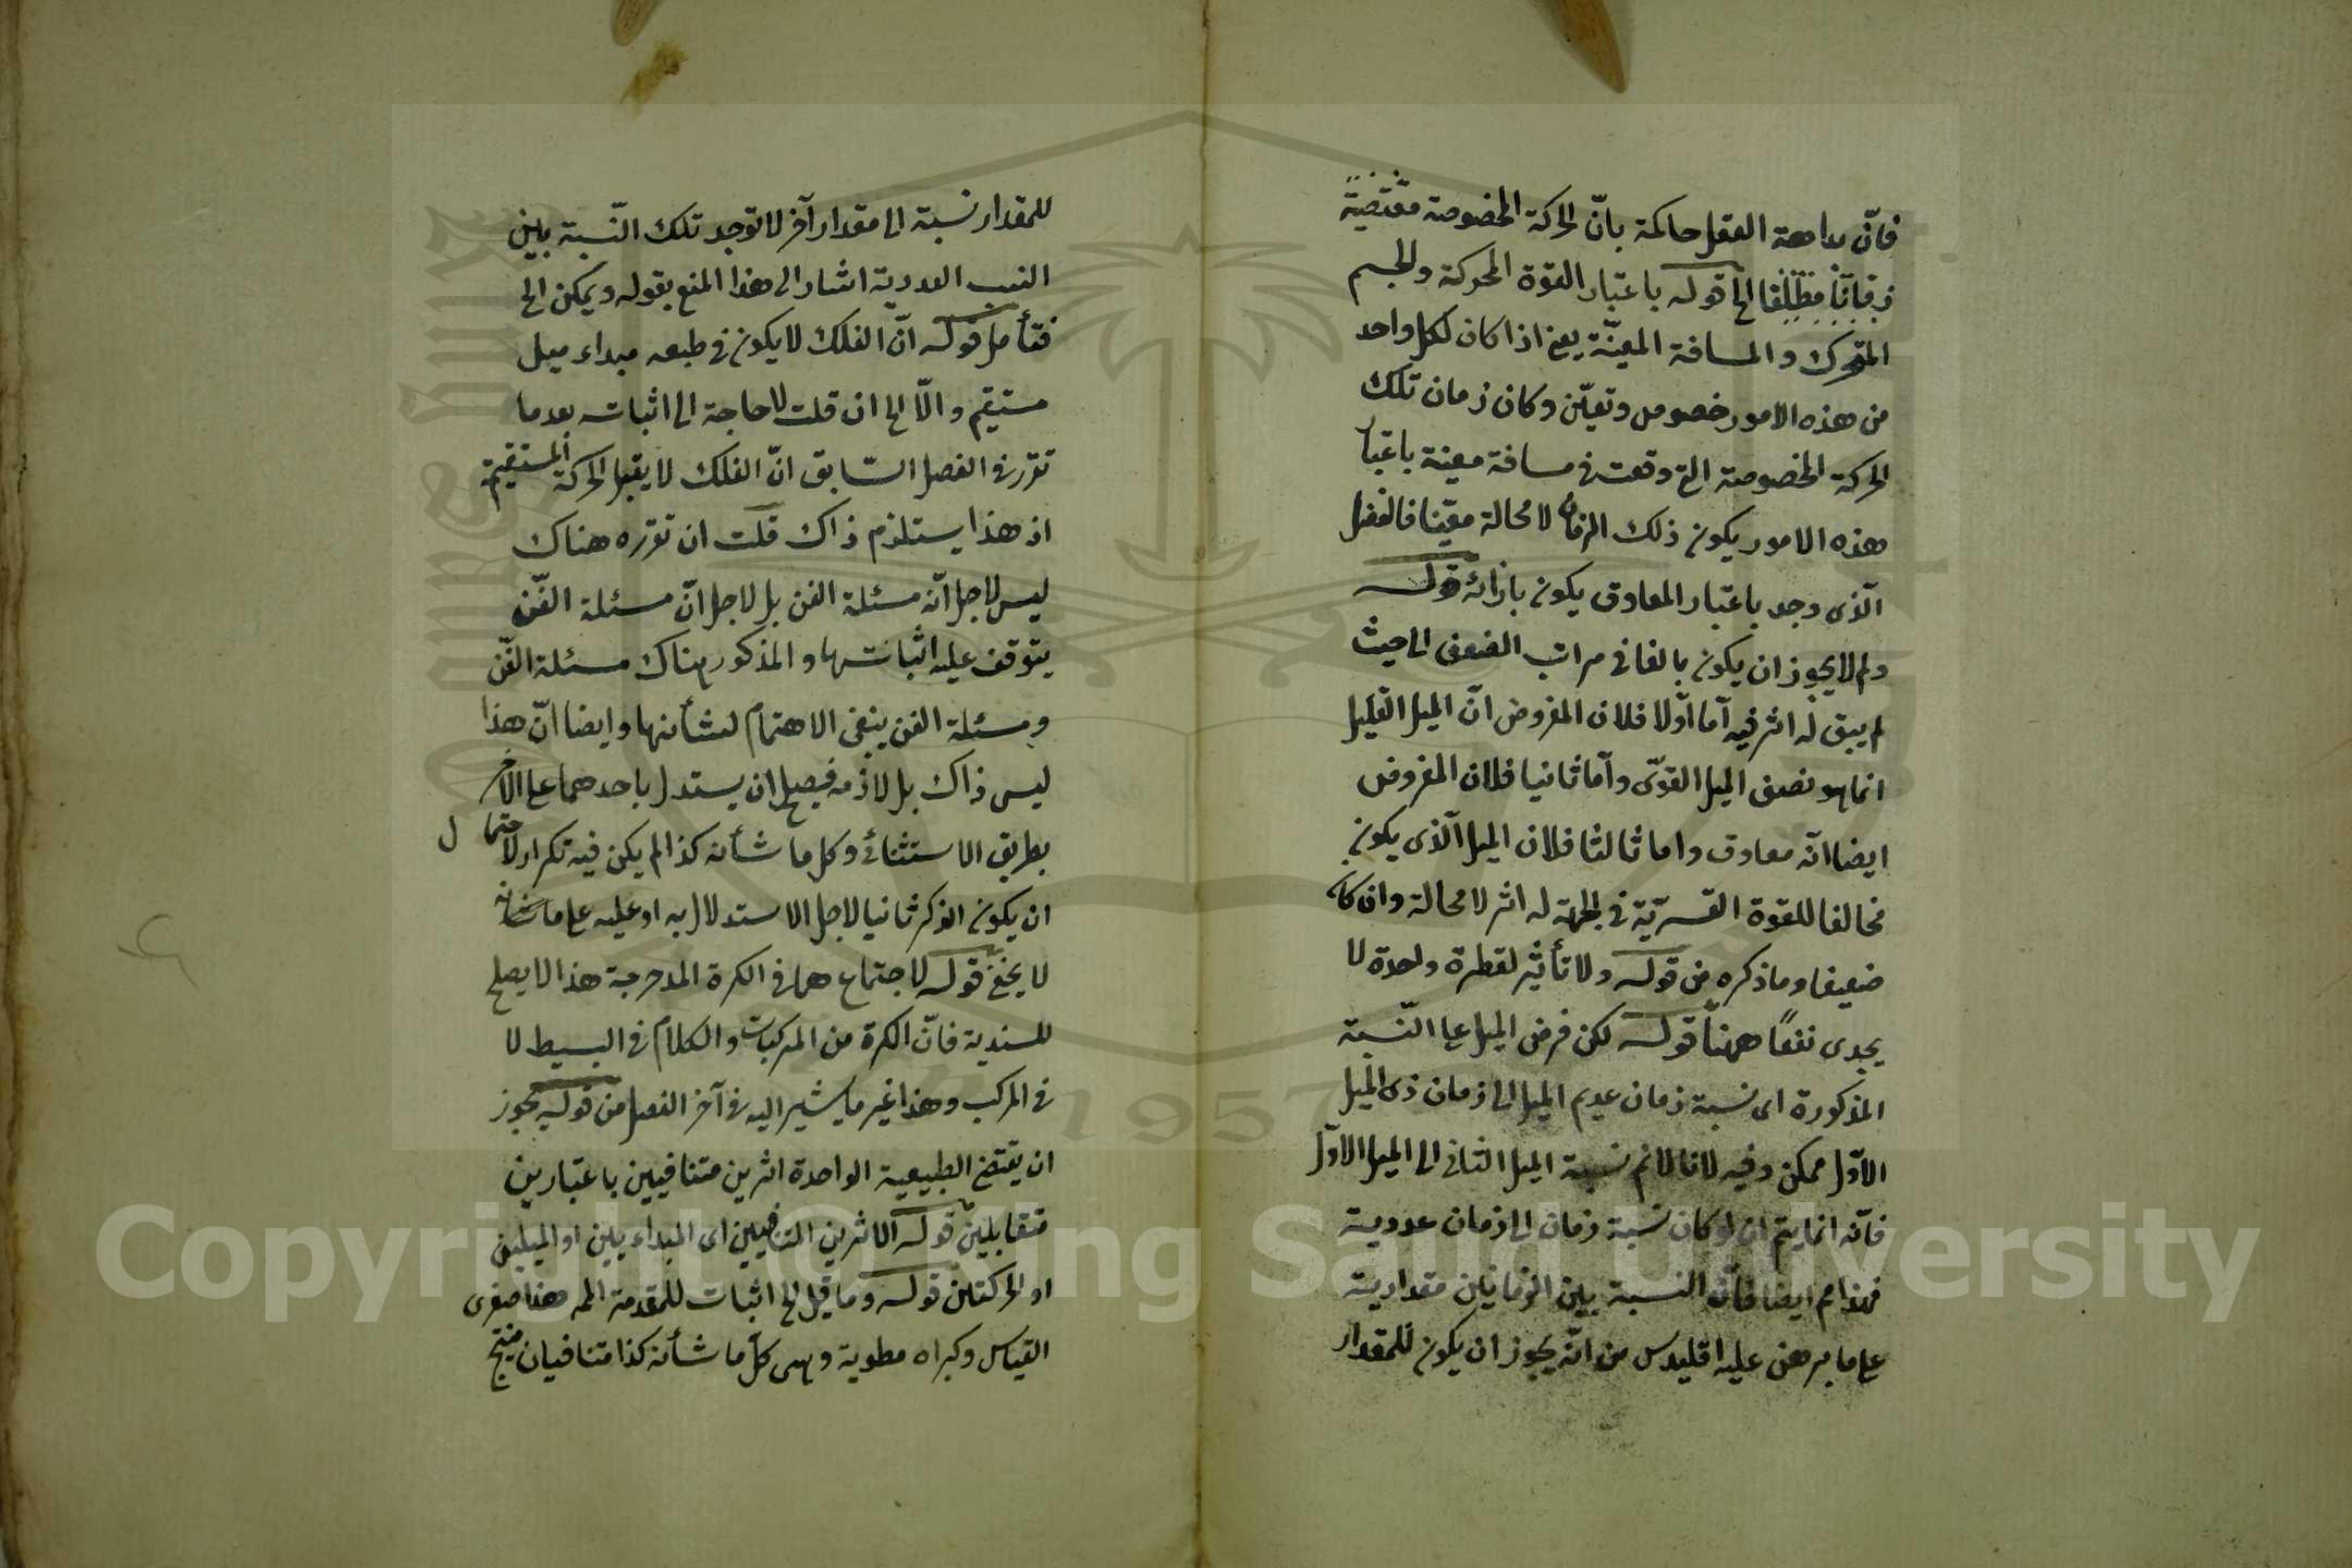 فانّ بداهة العقل حاكمة بانّ الحركة المخصوصة مقتضية
زمانا مطلقا الخ قوله باعتبار القوة المحركة والجسم
المتحرك والمسافة المعينّة يعنى اذا كان لكل واحد
من هذه الامور خصوص وتعيّن وكان زمان تلك
الحركة المخصوصة التى وقعت فى مسافة معينة باعتبار
هذه الامور يكون ذلك الزمان لا محالة معيّنا فالفضل
الّذى وجد باعتبار المعاوق يكون بازائه قوله
ولم لا يجوز ان يكون بالغا فى مراتب الضعف الى حيث
لم يبق له اثر فيه اما اوّلا فلان المفروض انّ الميل القليل
انما هو نصف الميل القوىّ واما ثانيا فلان المفروض
ايضا انّه معاوق واما ثالثا فلان الميل الّذى يكون
مخالفا للقوة القسريّة فى الجهة له اثر لا محالة وان كان
ضعيفا وما ذكره من قوله ولا تأثير لقطرة واحدة لا
يجدى نفعًا ههنا قوله لكن فرض الميل على النّسبة
المذكورة اى نسبة زمان عديم الميل الى زمان ذى الميل
الاوّل ممكن وفيه لانا لا نم نسبة الميل الثانى الى الميل الاوّل
فانّه انما يتم ان لو كان نسبة زمان الى زمان عددية
فهذا مم ايضا فانّ النسبة بين الزمانين مقدارية
على ما برهن عليه اقليدس من انّه يجوز ان يكون للمقدار
للمقدار نسبة الى مقدار آخر لا توجد تلك النّسبة بين
النسب العددية اشار الى هذا المنع بقوله ويمكن الخ
فتأمل قوله انّ الفلك لا يكون فى طبعه مبداء ميل
مستقيم والّا الخ ان قلت لا حاجة الى اثباته بعد ما
تقرر فى الفصل السّابق انّ الفلك لا يقبل الحركة المستقيمة
اذ هذا يستلزم ذاك قلت ان تقرره هناك
ليس لاجل انّه مسئلة الفن بل لاجل انّ مسئلة الفّن
يتوقف عليه اثباتها والمذكور هناك مسئلة الفّن
ومسئلة الفن ينبغى الاهتمام لشأنها وايضا انّ هذا
ليس ذاك بل لازمه فيصح ان يستدل باحدهما على الآخر
بطريق الاستثنائى وكل ما شأنه كذا لم يكن فيه تكرار لاحتمال
ان يكون الذكر ثانيا لاجل الاستدلال به او عليه على ما شانه
لا يخفى قوله لاجتماعهما فى الكرة المدحرجة هذا لا يصلح
للسندية فانّ الكرة من المركبات والكلام فى البسيط لا
فى المركب وهذا غير ما يشير اليه فى آخر الفصل من قوله يجوز
ان يقتضى الطبيعية الواحدة اثرين متنافيين باعتبارين
متقابلين قوله الاثرين المتنافيين اى المبداء يين او الميلين
او الحركتين قوله وما قيل الخ اثبات للمقدمة المم هذا صغرى
القياس وكبراه مطوية وهى كلّ ما شأنه كذا متنافيان منتج
Copyright © King Saud University
1957